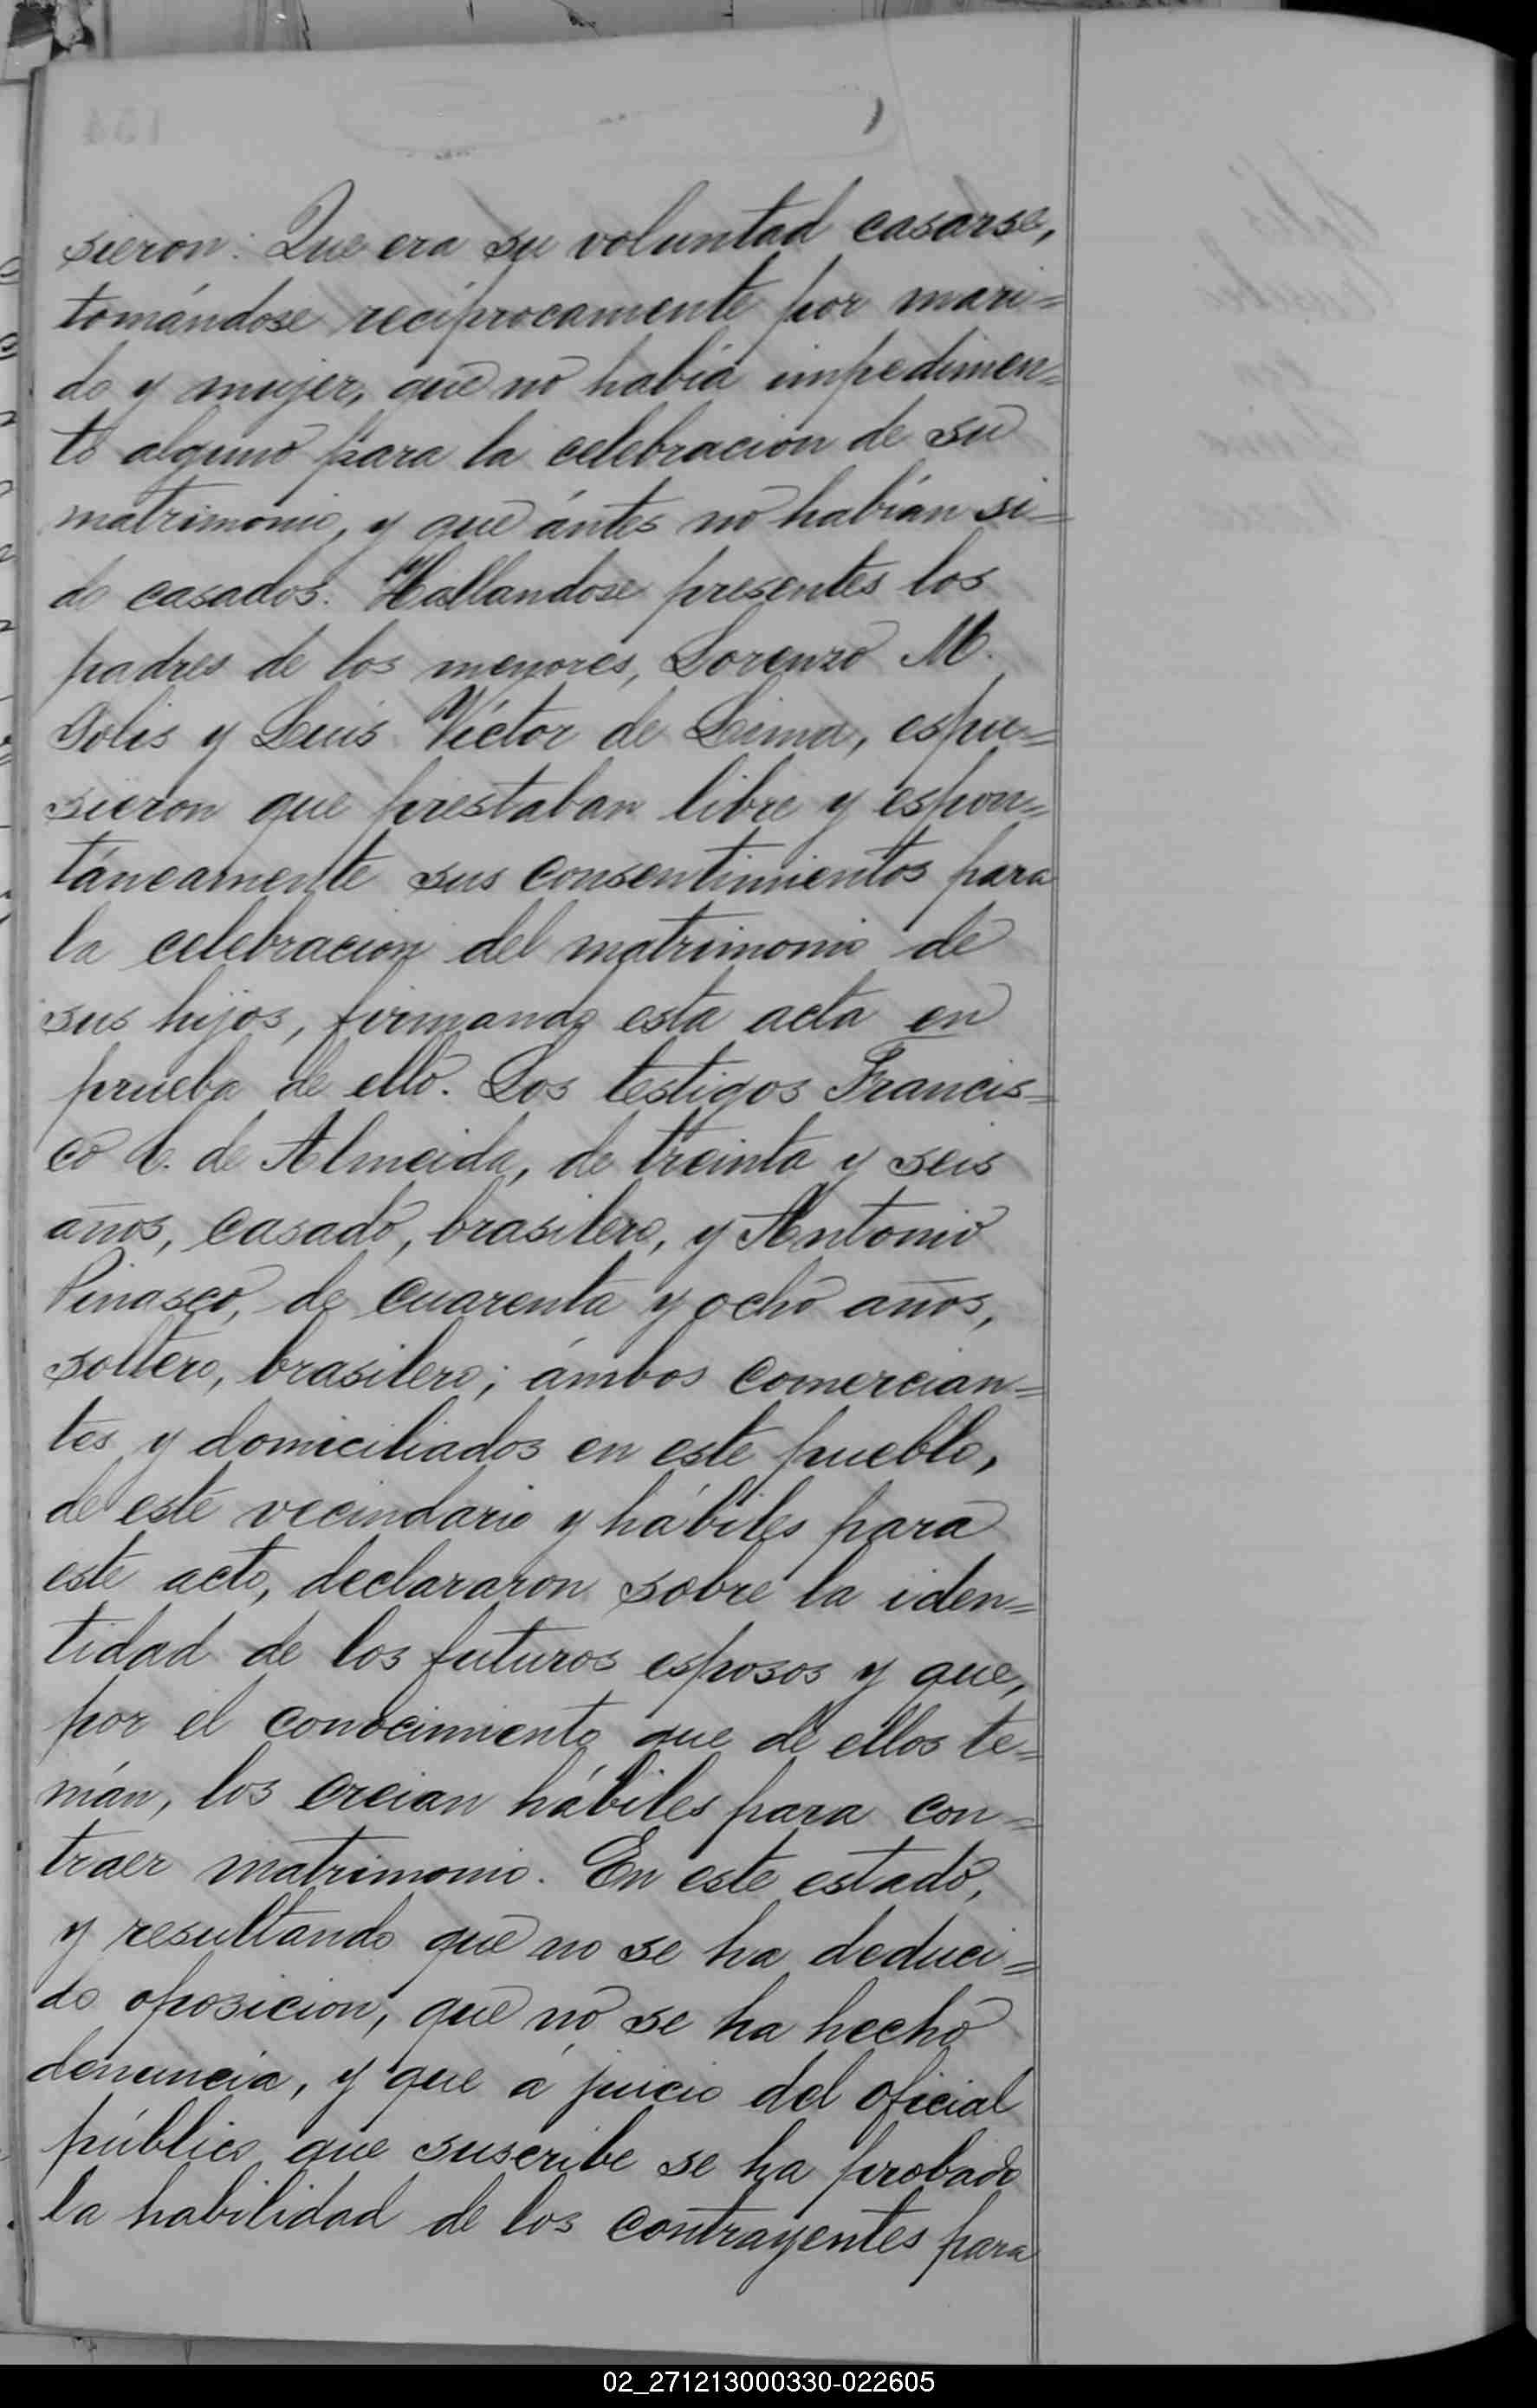 sieron: Que era su voluntad casarse,
tomándose recíprocamente por mari=
do y mujer, que no había impedimen=
to alguno para la celebracion de su
matrimonio, y que ántes no habían si=
do casados. Hallandose presentes los
padres de los menores, Lorenzo M.
Solis y Luis Víctor de Lima, espu=
sieron que prestaban libre y espon=
táneamente sus consentimientos para
la celebracion del matrimonio de
sus hijos, firmando esta acta en
prueba de ello. Los testigos Francis=
co de Almeida, de treinta y seis
años, casado, brasilero, y Antonio
Pinasco, de cuarenta y ocho años,
soltero, brasilero; ámbos comercian=
tes y domiciliados en este pueblo,
de este vecindario y hábiles para
este acto, declararon sobre la iden=
tidad de los futuros esposos y que,
por el conocimiento que de ellos te=
nían, los creian hábiles para con=
traer matrimonio. En este estado,
y resultando que no se ha deduci=
do oposicion, que no se ha hecho
denuncia, y que á juicio del oficial
público que suscribe se ha probado
la habilidad de los contrayentes para
02_271213000330-022605